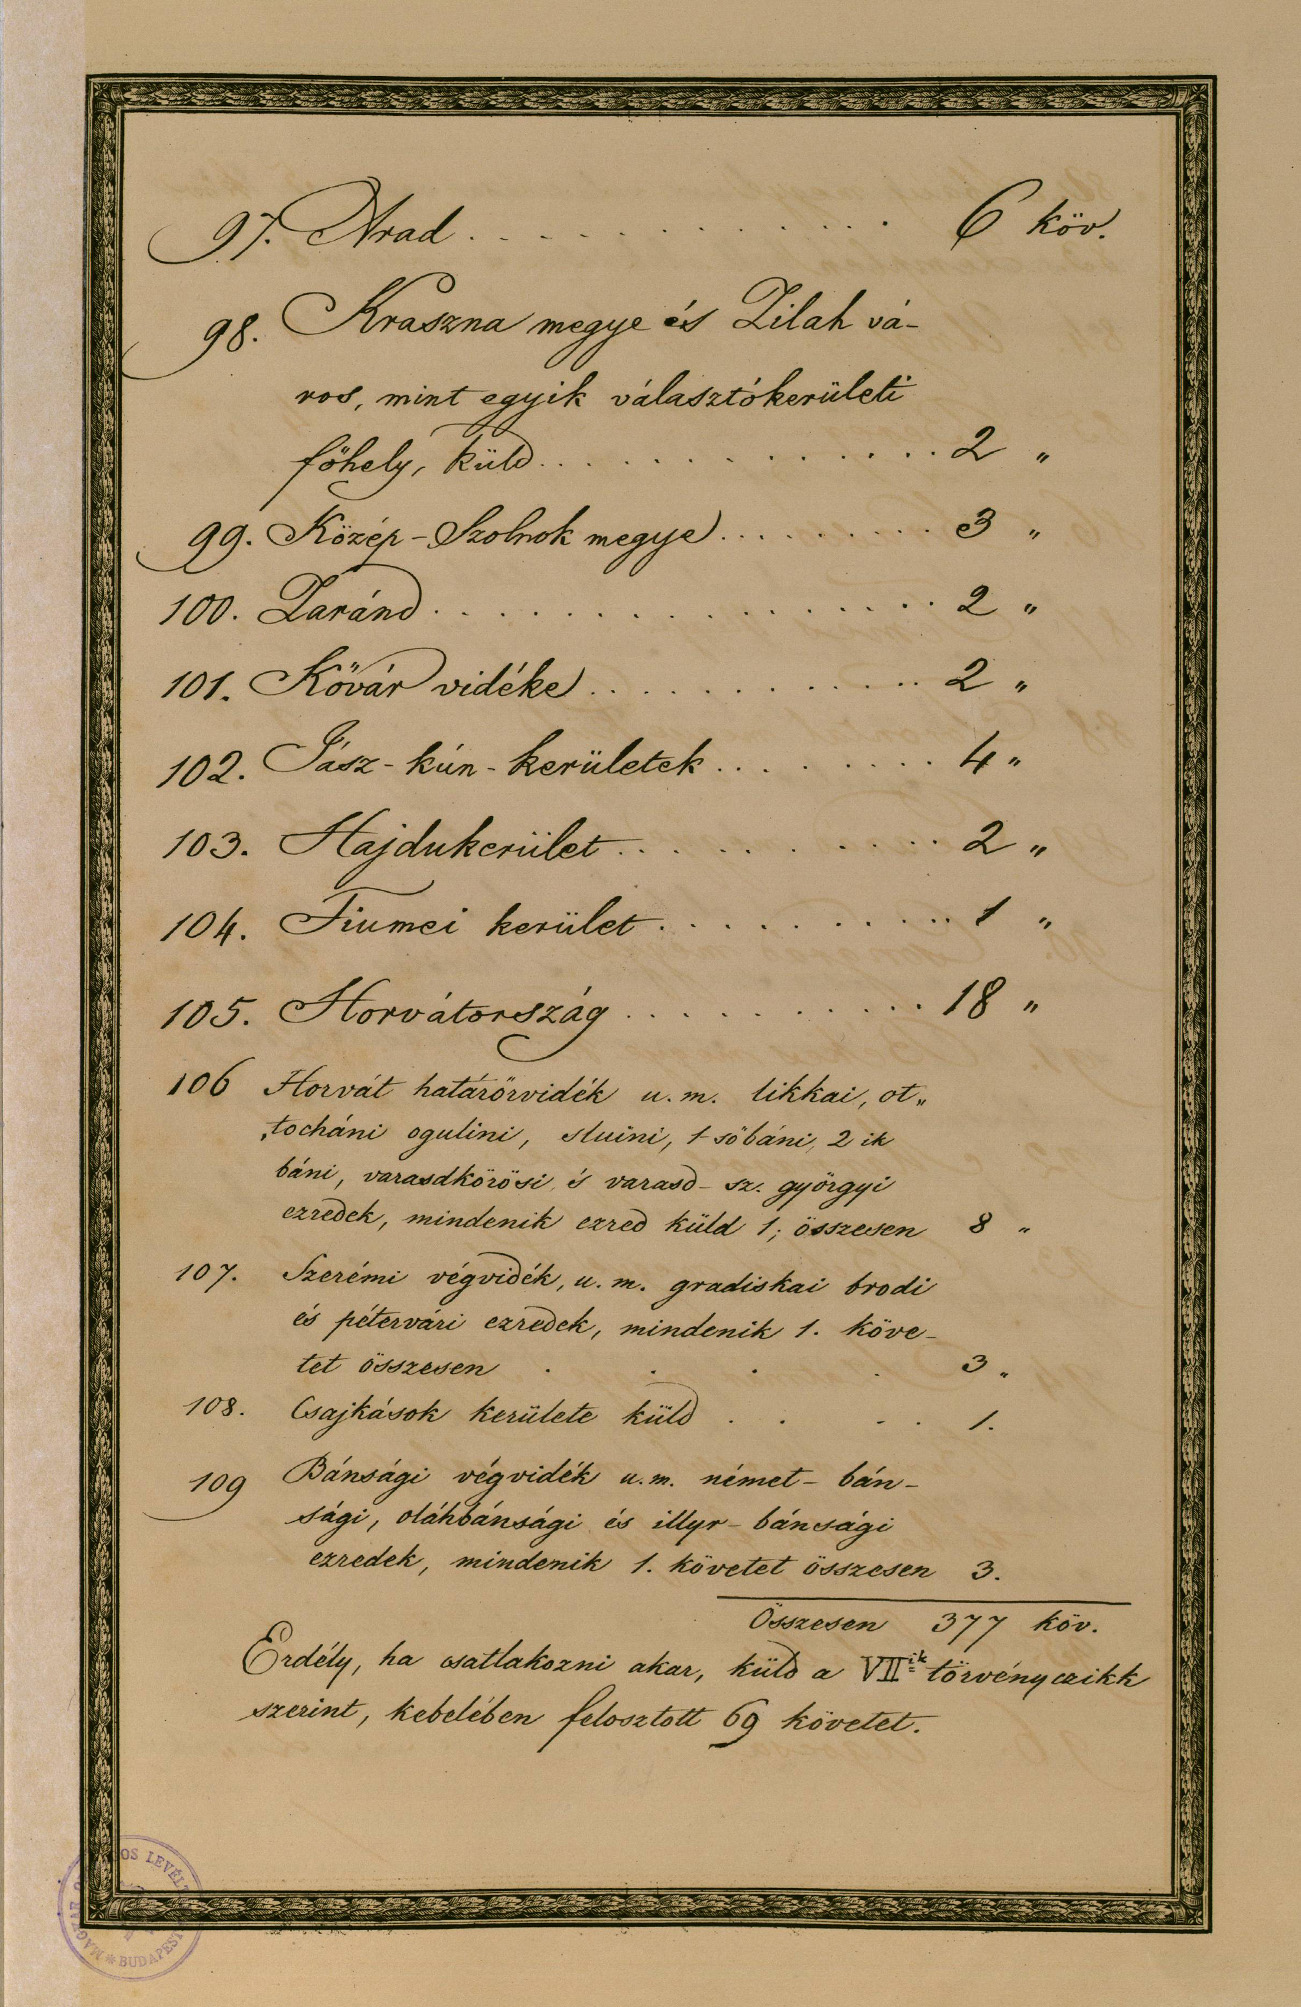 97. Arad . . . . . . . . . . . . . . 6 köv.
98. Kraszna megye és Zilah vá-
ros, mint egyik választókerületi
főhely, küld . . . . . . . . . . . . . . 2 "
99. Közép-Szolnok megye . . . . . . . . . 3 "
100. Zaránd . . . . . . . . . . . . . . . . . 2 "
101. Kővár vidéke . . . . . . . . . . . . . 2 "
102. Jász-kún-kerületek . . . . . . . . . 4 "
103. Hajdukerület . . . . . . . . . . . . 2 "
104. Fiumei kerület . . . . . . . . . . . 1 "
105. Horvátország . . . . . . . . . . . 18 "
106 Horvát határőrvidék u. m. likkai, ot„
„tocháni ogulini, sluini, 1 ső báni, 2 ik
báni, varasdkörösi, és varasd-sz. györgyi
ezredek, mindenik ezred küld 1; összesen 8 "
107. Szerémi végvidék, u. m. gradiskai brodi
és pétervári ezredek, mindenik 1. köve-
tet összesen . . . . 3 "
108. Csajkások kerülete küld . . . . 1.
109 Bánsági végvidék u. m. német-bán-
sági, oláhbánsági és illyr-bánsági
ezredek, mindenik 1. követet összesen 3.
Összesen 377 köv.
Erdély, ha csatlakozni akar, küld a VIIik törvényczikk
szerint, kebelében felosztott 69 követet.
MAGYAR OS LEVÉL
* BUDAPEST